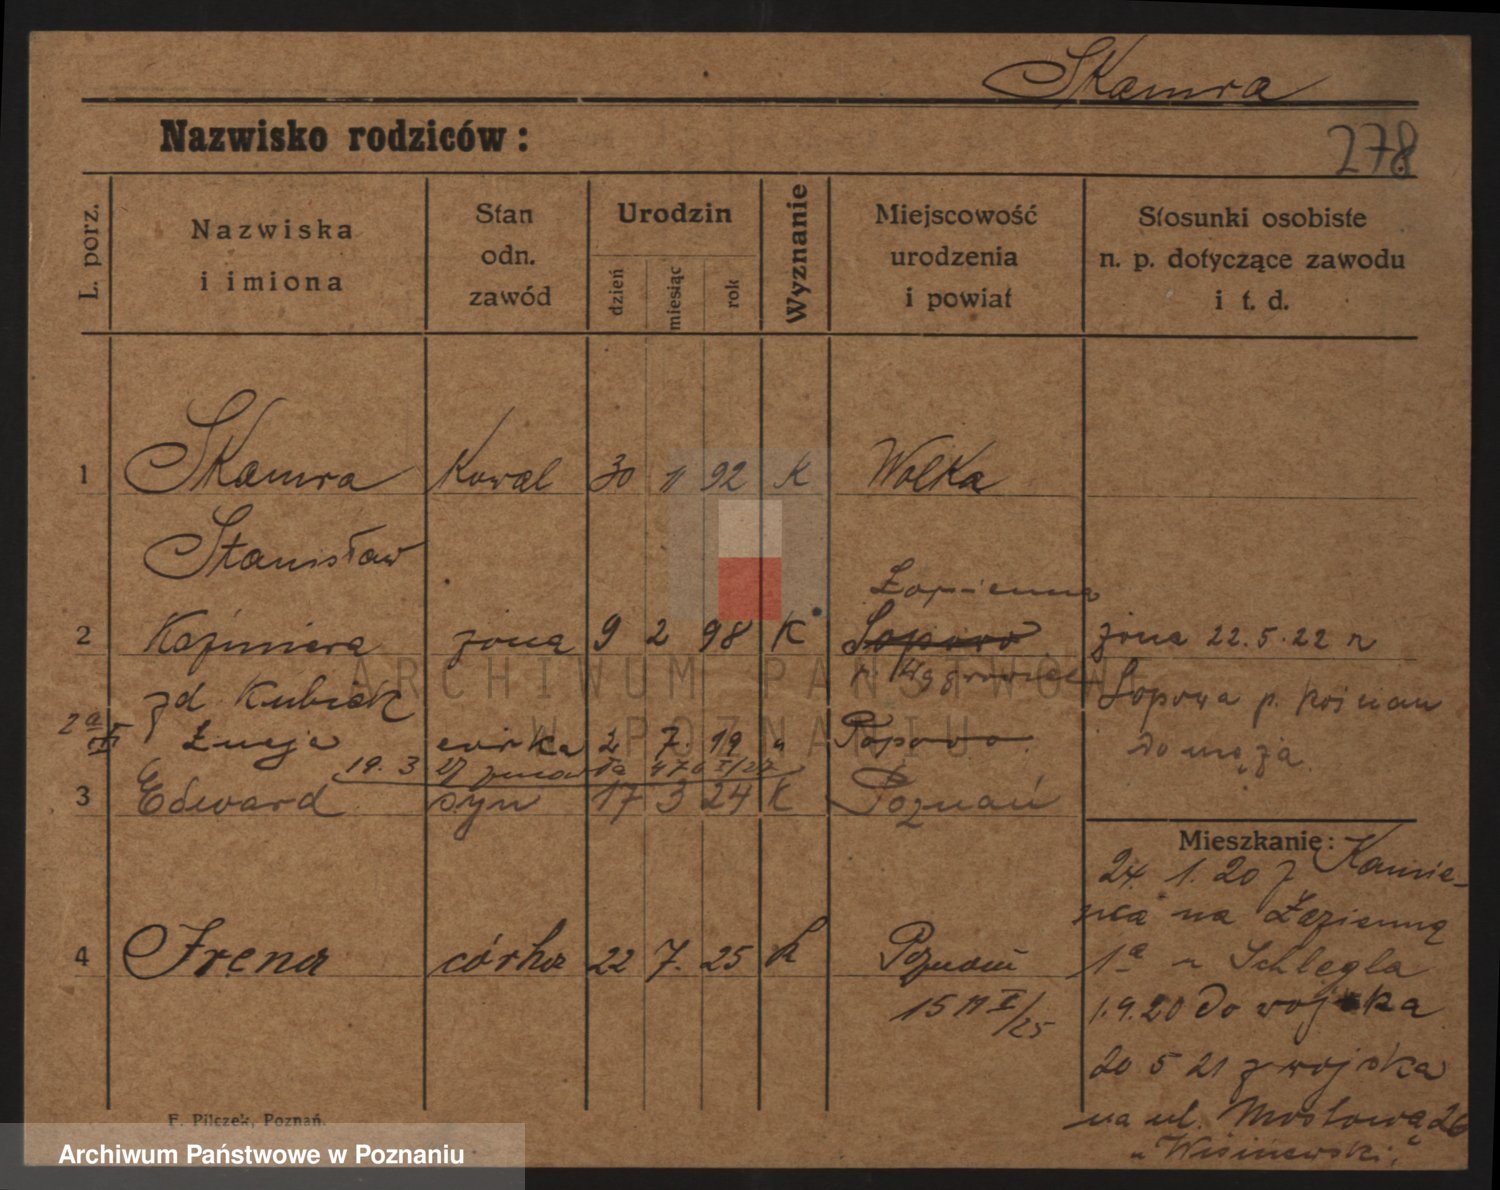 Skamra
Nazwisko rodziców:
278
L. porz.
Nazwiska
i imiona
Stan
odn.
zawód
Urodzin
dzień
miesiąc
rok
Wyznanie
Miejscowość
urodzenia
i powiat
Stosunki osobiste
n. p. dotyczące zawodu
i t. d.
1 Skamra Kowal 30 11 92 K Wolka
Stanisław
Łopienno
2 Kaźmiera żona 9 2 98 K Sopowo żona 22.5.22 z
zd Kubiak p. Wągrowiec Sopowa p. Kościan
2a Łucja córka 2 7. 19 " Popowo do męża
19. 3 27
3 Edward syn 17 3 24 K Poznań
Mieszkanie:
24. 1. 20 z Kamie-
ńca na Łazienną
4 Irena córka 22 7. 25 k Poznań
1a u Schlegla
15 25
1.9.20 do wojska
20 5 21 z wojska
na ul. Mostową 26
u Wiśniewski.
F. Pilczek, Poznań.
ARCHIWUM PAŃSTWOWE
W POZNANIU
Archiwum Państwowe w Poznaniu